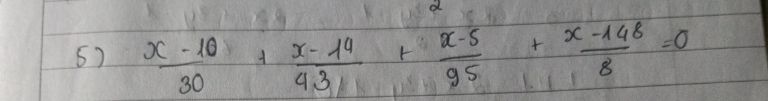 2
5) x - 10 / 30 + x - 14 / 43 + x - 5 / 95 + x - 148 / 8 = 0